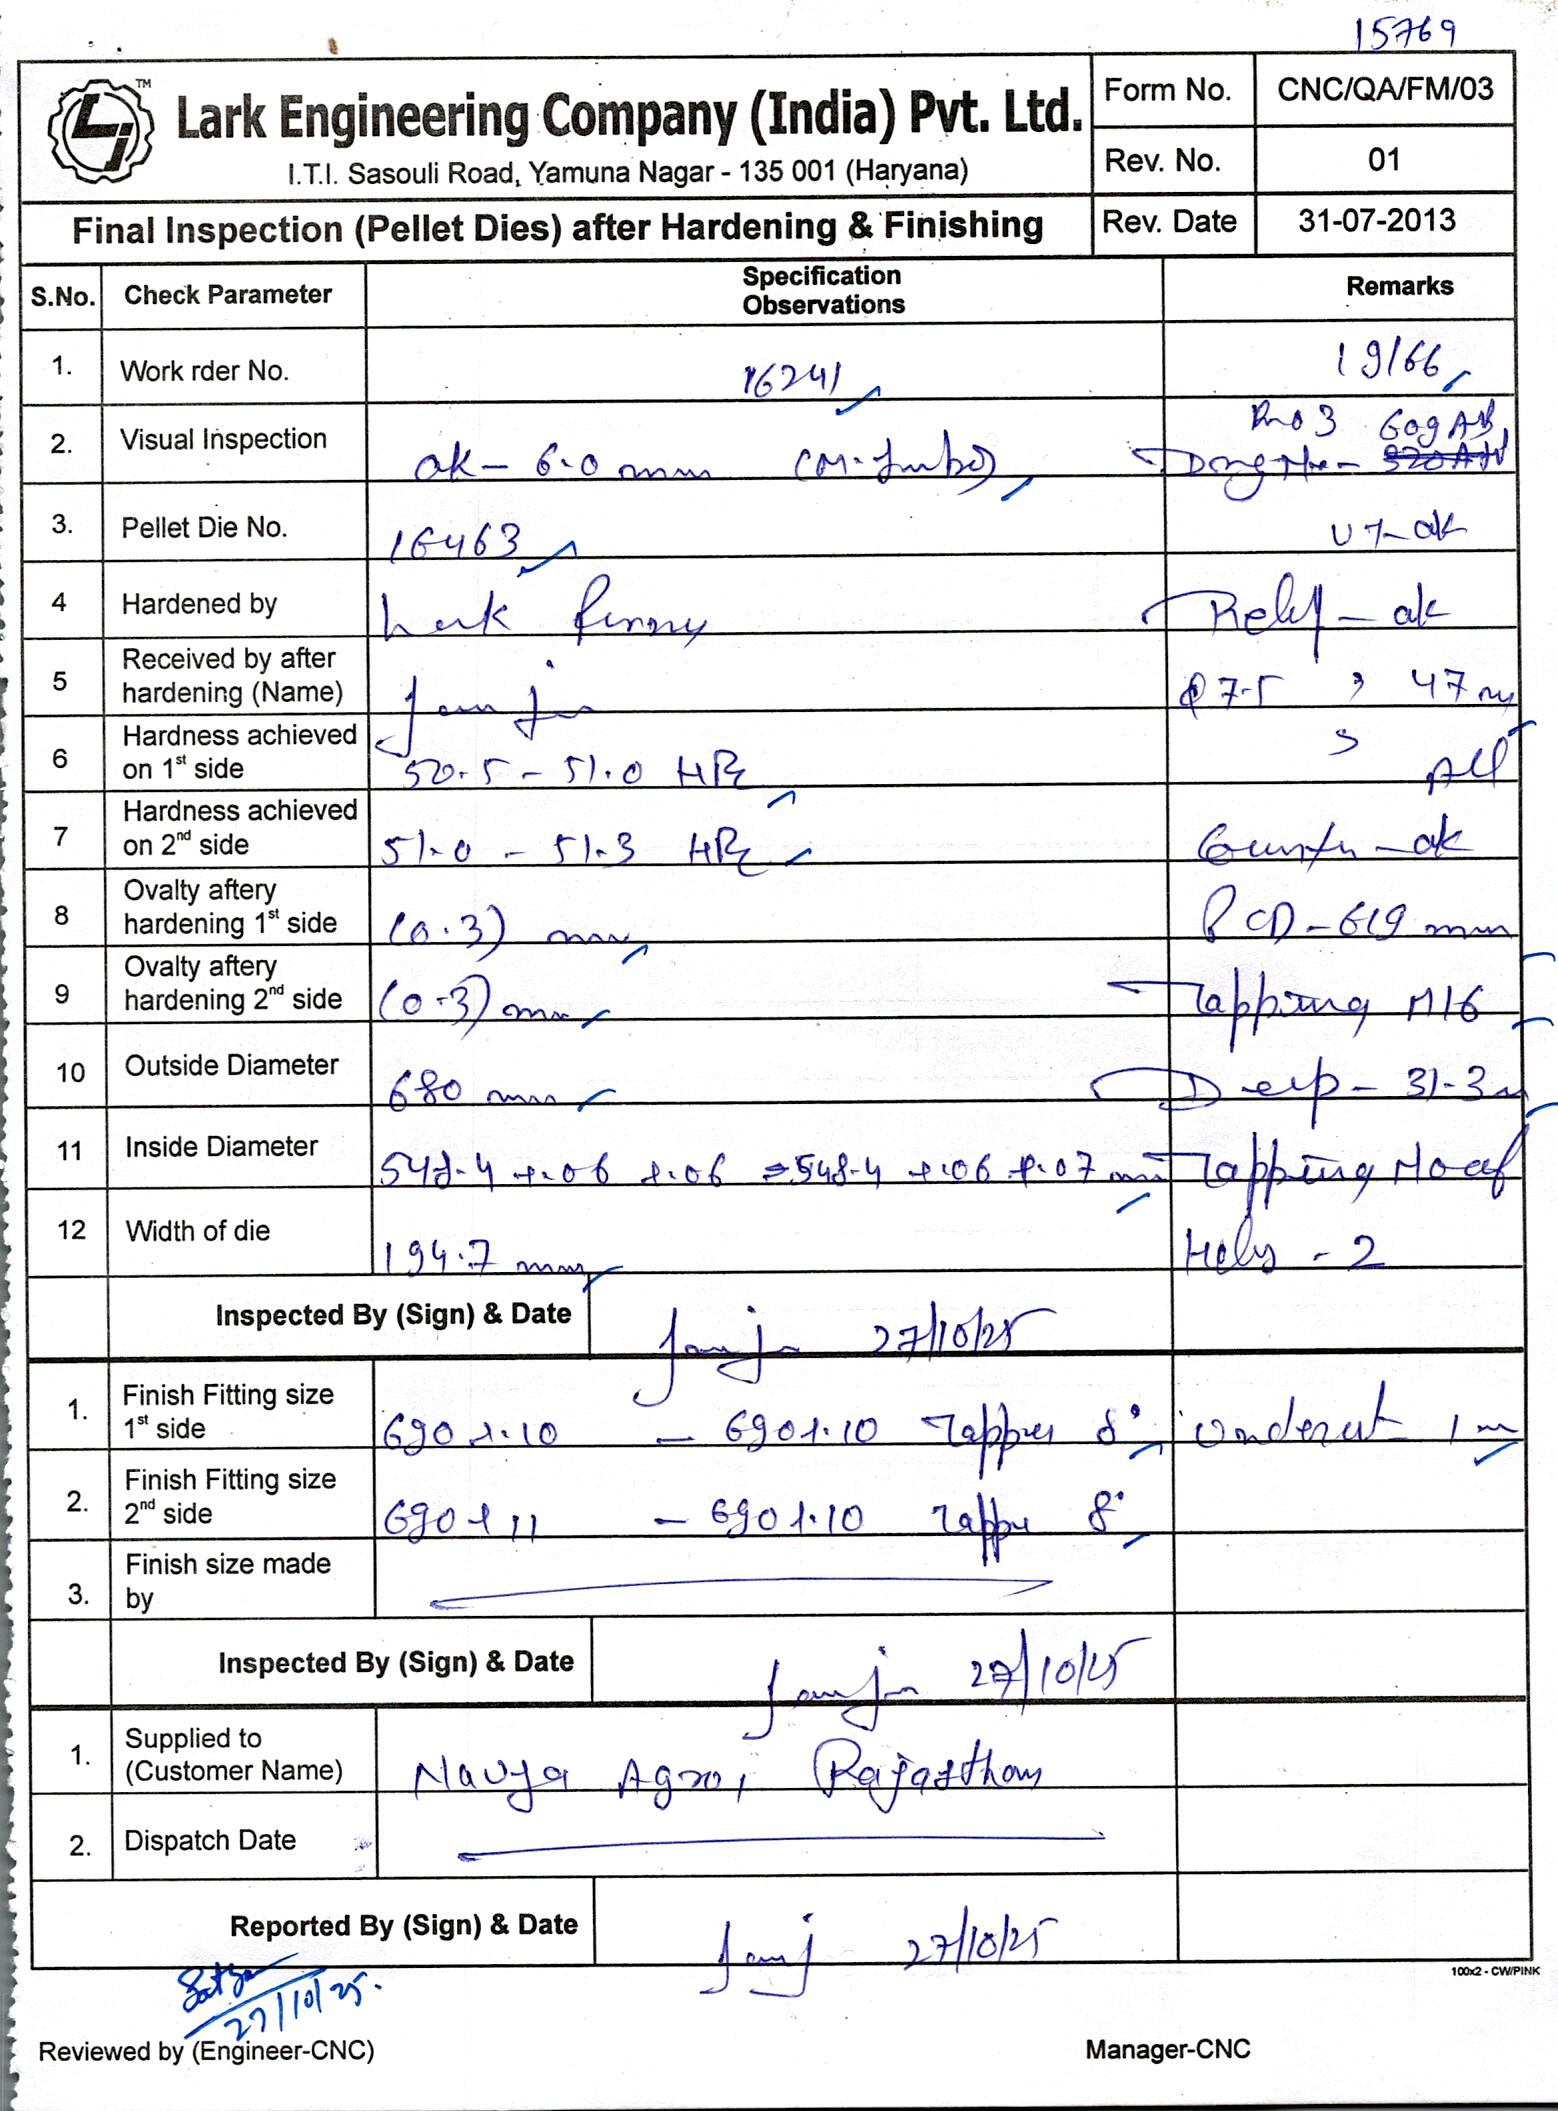 15769
TM
Lark Engineering Company (India) Pvt. Ltd.
I.T.I. Sasouli Road, Yamuna Nagar - 135 001 (Haryana)
Form No. CNC/QA/FM/03
Rev. No. 01
Final Inspection (Pellet Dies) after Hardening & Finishing
Rev. Date 31-07-2013
S.No. Check Parameter Specification Observations Remarks
1. Work rder No. 16241 19/66
2. Visual Inspection ok - 6.0 mm 609
3. Pellet Die No. 16463 ok
4 Hardened by - ok
5 Received by after hardening (Name) 47
6 Hardness achieved on 1st side 50.5 - 51.0 HRc
7 Hardness achieved on 2nd side 51.0 - 51.3 HRc - ok
8 Ovalty aftery hardening 1st side (0.3) mm PCD - 619 mm
9 Ovalty aftery hardening 2nd side (0.3) mm Tapping M16
10 Outside Diameter 680 mm Deep - 31.3
11 Inside Diameter 548.4 +.06 +.06 548.4 +.06 +.07 mm Tapping No of
12 Width of die 194.7 mm Holes - 2
Inspected By (Sign) & Date 27/10/25
1. Finish Fitting size 1st side 690 +.10 - 690 +.10 8° Undercut 1 m
2. Finish Fitting size 2nd side 690 + 11 - 690 +.10 8°
3. Finish size made by
Inspected By (Sign) & Date 27/10/25
1. Supplied to (Customer Name) Navya Agro, Rajasthan
2. Dispatch Date
Reported By (Sign) & Date 27/10/25
100x2 - CW/PINK
27/10/25.
Reviewed by (Engineer-CNC) Manager-CNC